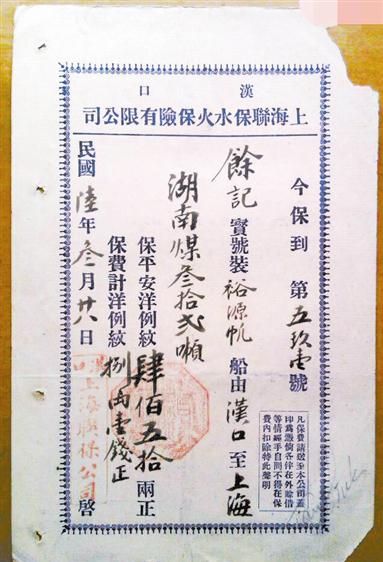 漢口
上海聯保水火保險有限公司
今保到 第五玖壹號
餘記寶號裝裕源帆船由漢口至上海
湖南煤叁拾弍噸
保平安洋例紋肆佰五拾兩正
保費計洋例紋捌両壹錢正
民國陸年叁月廿八日
漢口上海聯保公司啓
凡保費請送至本公司蓋
印爲憑倘各伴在外賒借
等情經手自問不得在保
費內扣除特此聲明